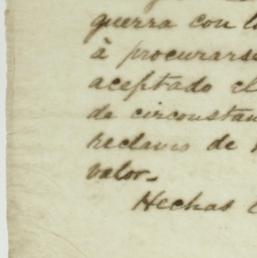 guerra con l
à procurarse
aceptado el
de circonstan
reclavos de
valor_
Hechas